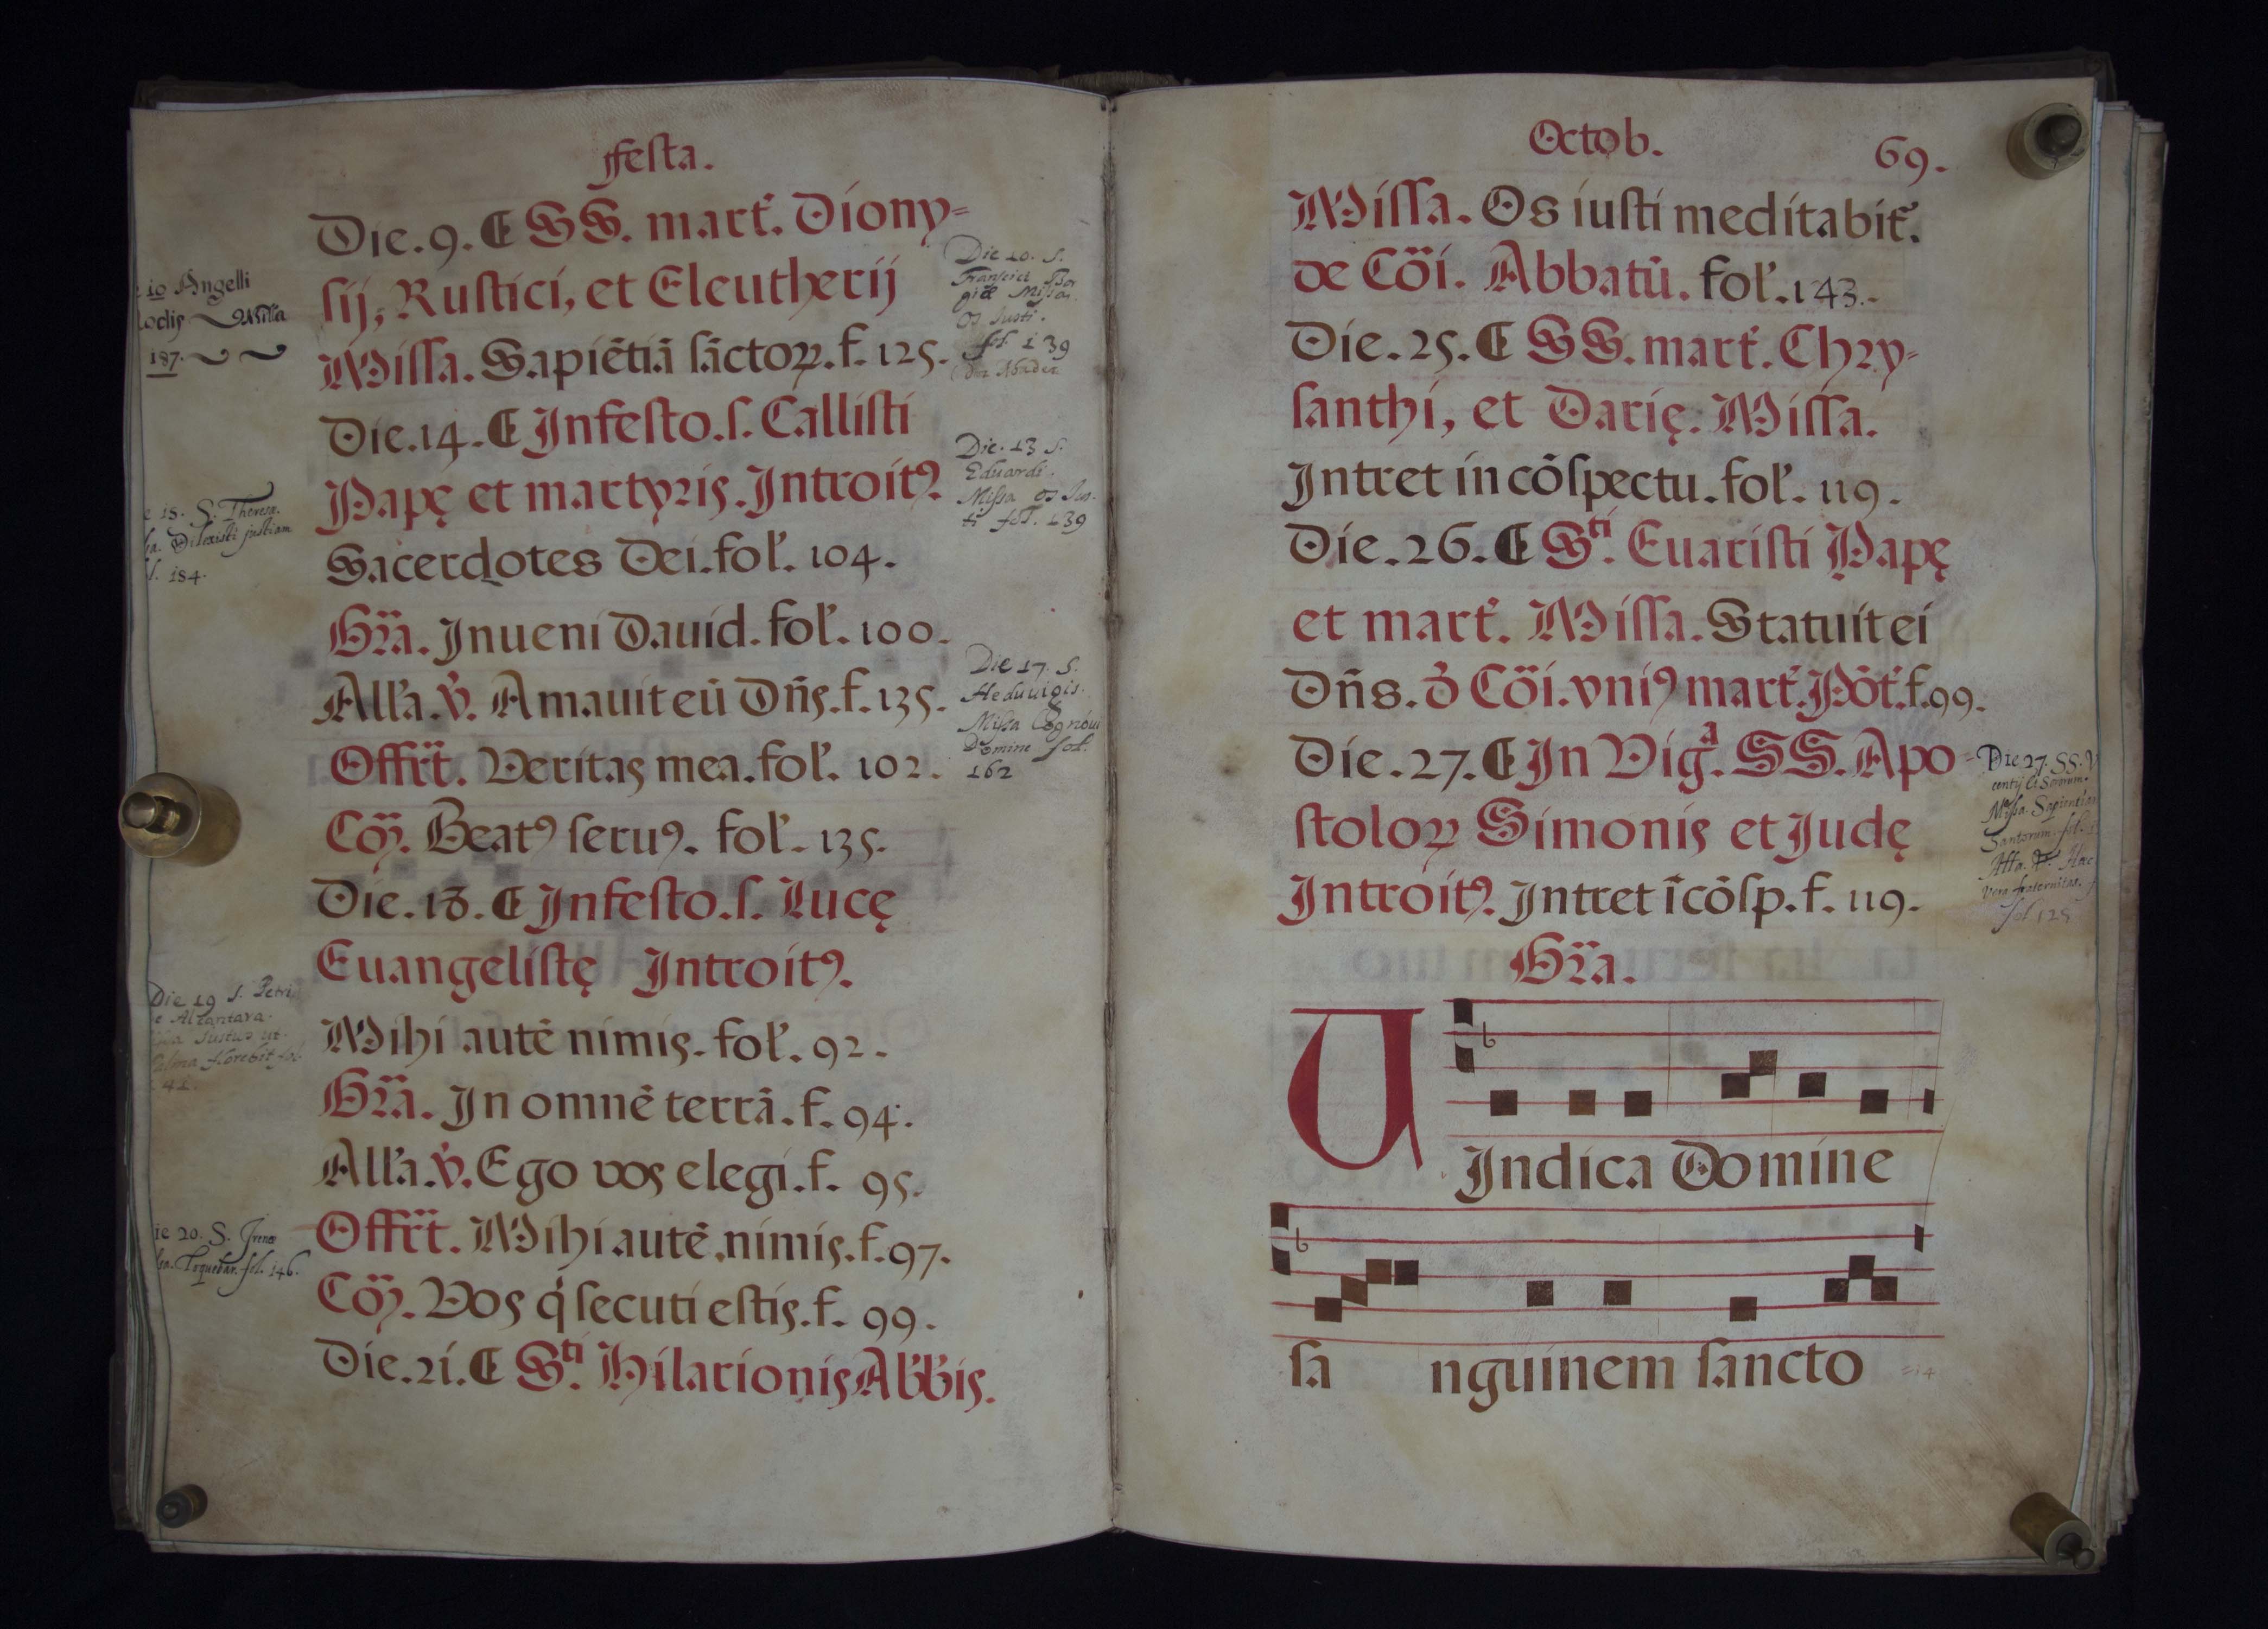 Festa.
Die. 9. ¶ SS. mart̃. Diony=
sij, Rustici, et Eleutherij
Missa. Sapiẽtiã sãctoꝝ. f. 125.
Die. 14. ¶ In festo. s. Callisti
Papę et martyris. Introitꝰ.
Sacerdotes Dei. fol̃. 104.
Gr̃a. Inueni Dauid. fol̃. 100.
All̃a. ℣. Amauit eũ Dñs. f. 135.
Offr̃t. Veritas mea. fol̃. 102.
Cõ. Beatꝰ seruꝰ. fol̃. 135.
Die. 18. ¶ In festo. s. Lucę
Euangelistę Introitꝰ.
Mihi autẽ nimis. fol̃. 92.
Gr̃a. In omnẽ terrã. f. 94.
All̃a. ℣. Ego vos elegi. f. 95.
Offr̃t. Mihi autẽ nimis. f. 97.
Cõ. Vos q̇ secuti estis. f. 99.
Die. 21. ¶ S.ti Hilarionis Ab̃b̃is.
10 Angelli
Missa
187.
15. S. Theresæ.
Dilexisti justiam
184.
Die 19 S. Petri
Alcantara.
Justus ut
Palma florebit fol.
ie 20. S. Irenæ
Loquebar. fol. 146.
Die 10. S.
Francisci Bor
giæ Missa.
Os Justi.
fol. 139
Die. 13 S.
Eduardi.
Missa os Jus-
ti fol. 139
Die 17. S.
Heduuigis.
Missa Cognoui
Domine fol.
162
Octob. 69.
Missa. Os iusti meditabit̃.
de Cõi. Abbatũ. fol̃. 143.
Die. 25. ¶ SS. mart̃. Chry-
santhi, et Darię. Missa.
Intret in cõspectu. fol̃. 119.
Die. 26. ¶ S.ti Euaristi Papę
et mart̃. Missa. Statuit ei
Dñs. đ Cõi. vniꝰ mart̃. Põt̃. f. 99.
Die. 27. ¶ In Vig.a SS. Apo-
stoloꝝ Simonis et Judę
Introitꝰ. Intret ĩ cõsp. f. 119.
Gr̃a.
VIndica Domine
sa nguinem sancto
Die 27. SS. V
centij et Sororum.
Missa. Sapientiam
Santorum. fol.
All̃a. ℣. Hæc
vera fraternitas.
fol 128